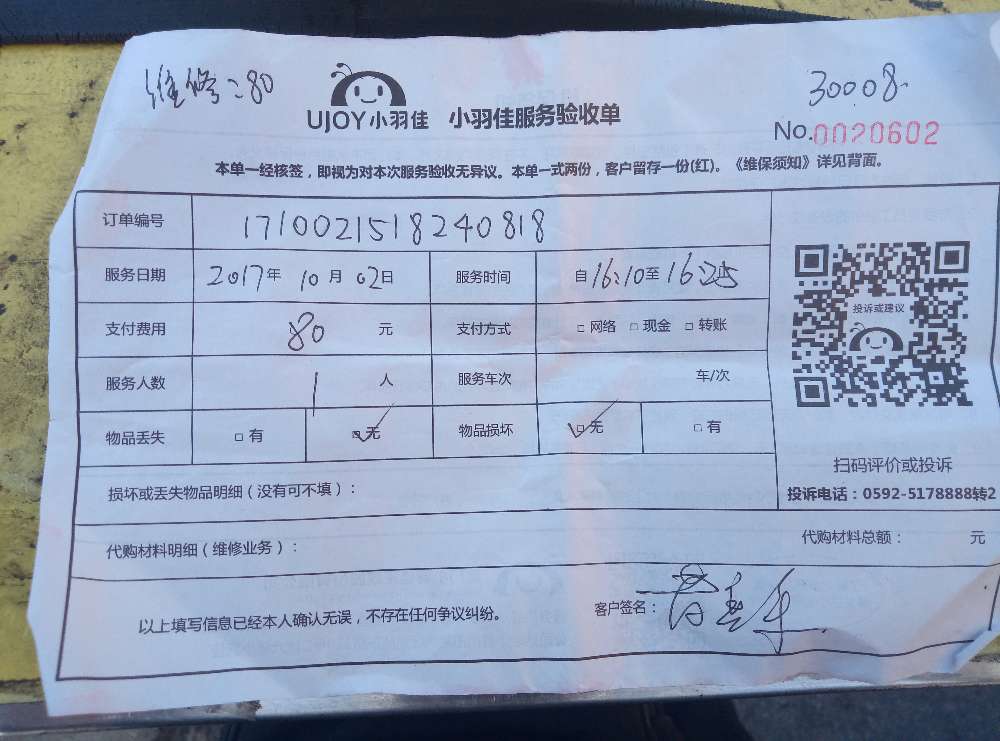 维修:80
30008
UJOY小羽佳 小羽佳服务验收单
No.0020602
本单一经核签，即视为对本次服务验收无异议。本单一式两份，客户留存一份(红)。《维保须知》详见背面。
订单编号 1710021518240818
服务日期 2017年 10月 02日 服务时间 自16:10至16:25
支付费用 80 元 支付方式 □ 网络 □ 现金 □ 转账
服务人数 1 人 服务车次 车/次
物品丢失 □ 有 ☑ 无 物品损坏 ☑ 无 □ 有
投诉或建议
扫码评价或投诉
投诉电话：0592-5178888转2
损坏或丢失物品明细（没有可不填）：
代购材料明细（维修业务）： 代购材料总额： 元
以上填写信息已经本人确认无误，不存在任何争议纠纷。 客户签名：